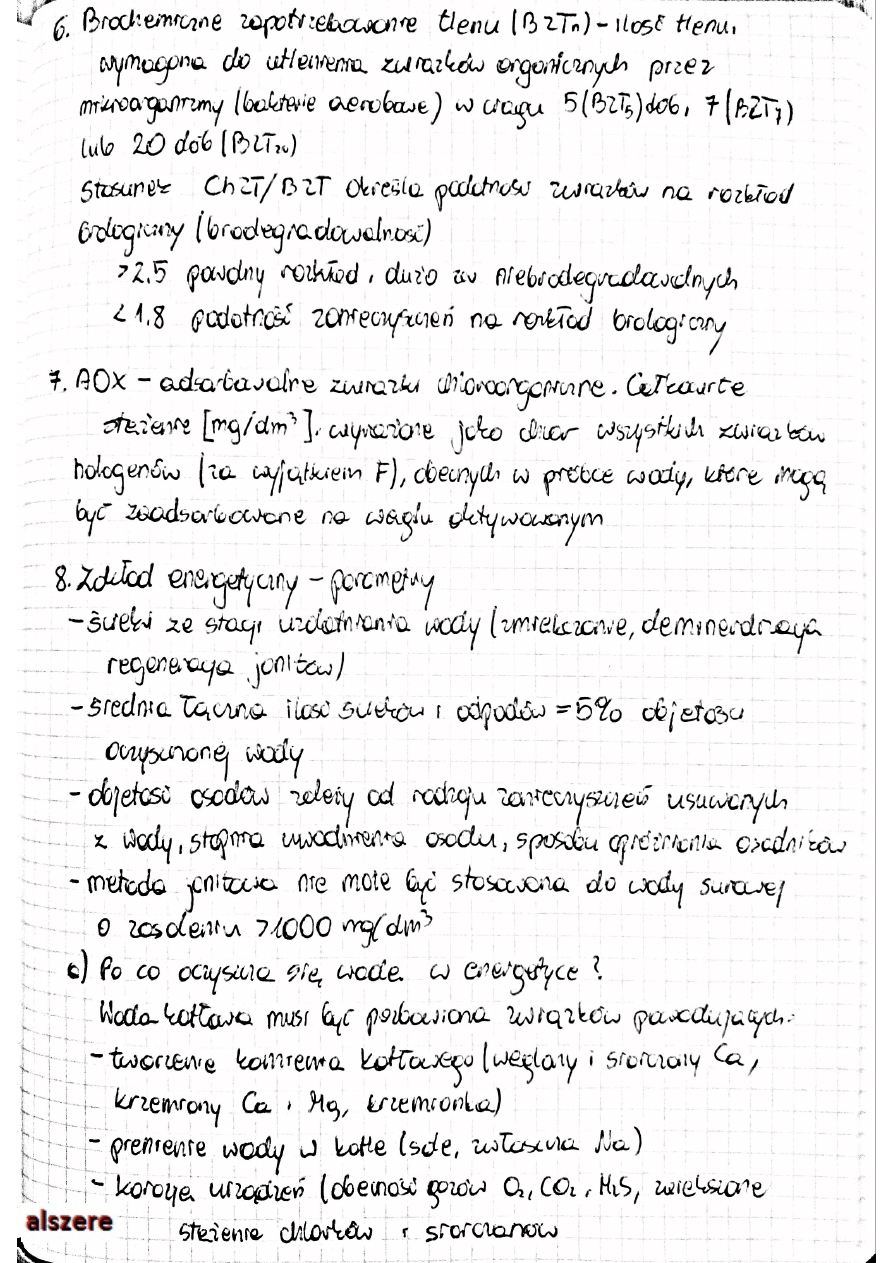 6. Biochemiczne zapotrzebowanie tlenu (BZTn) - ilość tlenu,
wymagana do utlenienia związków organicznych przez
mikroorganizmy (bakterie aerobowe) w ciągu 5 (BZT5) dób, 7 (BZT7)
lub 20 dób (BZT20)
Stosunek ChZT/BZT określa podatność związków na rozkład
biologiczny (biodegradowalność)
>2,5 powolny rozkład, dużo zw niebiodegradowalnych
<1,8 podatność zanieczyszczeń na rozkład biologiczny
7. AOX - adsorbowalne związki chloroorganiczne. Całkowite
stężenie [mg/dm³], wyrażone jako chlor wszystkich związków
halogenów (za wyjątkiem F), obecnych w próbce wody, które mogą
być zaadsorbowane na węglu aktywowanym
8. Zakład energetyczny - parametry
- ścieki ze stacji uzdatniania wody (zmiękczanie, demineralizacja
regeneracja jonitów)
- średnia łączna ilość ścieków i odpadów = 5% objętości
oczyszczonej wody
- objętość osadów zależy od rodzaju zanieczyszczeń usuwanych
z wody, stopnia uwodnienia osadu, sposobu opróżniania osadników
- metoda jonitowa nie może być stosowana do wody surowej
o zasoleniu >1000 mg/dm³
c) Po co oczyszcza się wodę w energetyce?
Woda kotłowa musi być pozbawiona związków powodujących:
- tworzenie kamienia kotłowego (węglany i siarczany Ca,
krzemiany Ca i Mg, krzemionka)
- pienienie wody w kotle (sole, zwłaszcza Na)
- korozja urządzeń (obecność gazów O2, CO2, H2S, zwiększone
stężenie chlorków i siarczanów
alszere